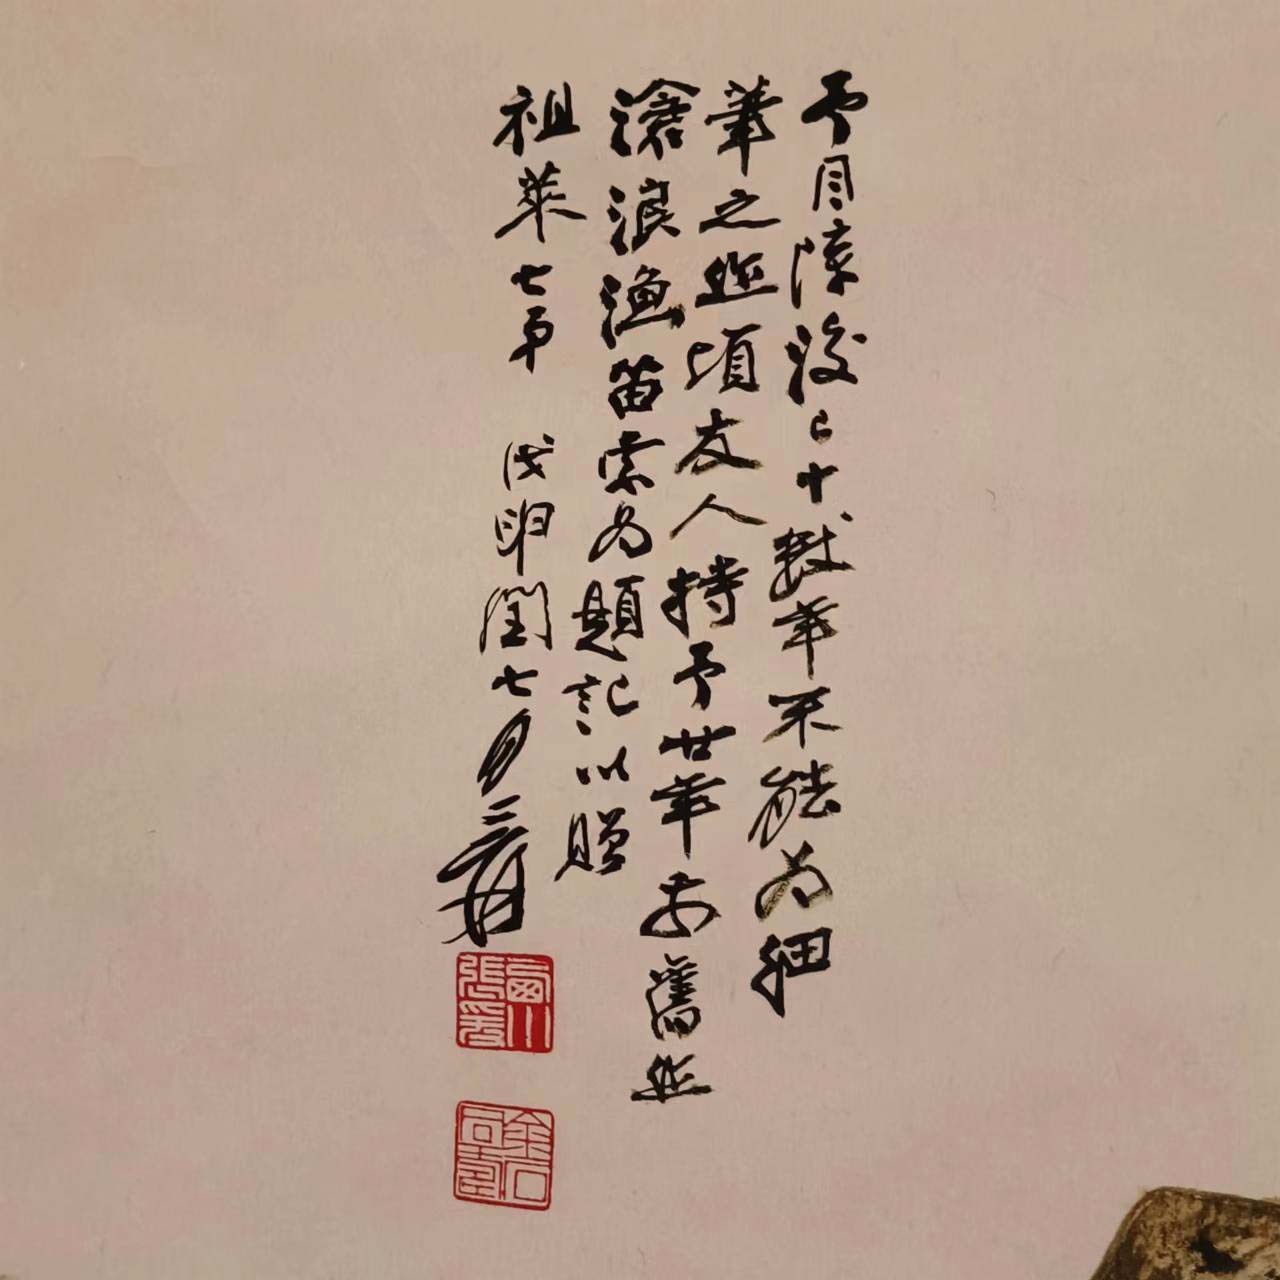 予目障後已十數年不能為細
筆之迹頃友人持予廿年前舊迹
滄浪漁笛索為題記以贈
祖萊七弟 戊申閏七月 爰
西川張爰
金石同壽